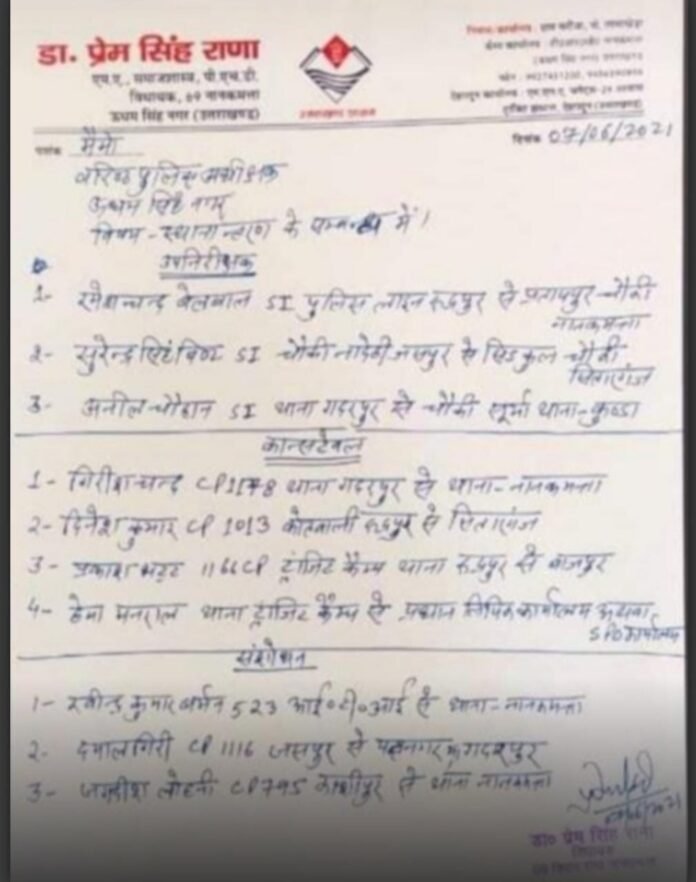 डा. प्रेम सिंह राणा
एम.ए., समाजशास्त्र, पी.एच.डी.
विधायक, 69 नानकमत्ता
ऊधम सिंह नगर (उत्तराखण्ड)
दिनांक 07/06/2021
मैमो
वरिष्ठ पुलिस अधीक्षक
ऊधम सिंह नगर
विषय - स्थानान्तरण के सम्बन्ध में।
उपनिरीक्षक
1- रमेश चन्द्र बेलवाल SI पुलिस लाइन रूद्रपुर से प्रतापपुर चौकी
नानकमत्ता
2- सुरेन्द्र सिंह बिष्ट SI चौकी नादेही जसपुर से सिडकुल चौकी
सितारगंज
3- अनील चौहान SI थाना गदरपुर से चौकी सूर्या थाना-कुण्डा
कान्सटेबल
1- गिरीश चन्द्र CP 1178 थाना गदरपुर से थाना-नानकमत्ता
2- दिनेश कुमार CP 1013 कोतवाली रूद्रपुर से सितारगंज
3- प्रकाश भट्ट 1166 CP ट्रांजिट कैम्प थाना रूद्रपुर से बाजपुर
4- हेमा मनराल थाना ट्रांजिट कैम्प से प्रधान लिपिक कार्यालय अथवा
SPO कार्यालय
संशोधन
1- रवीन्द्र कुमार बर्मन 523 आई०टी०आई से थाना-नानकमत्ता
2- दयाल गिरी CP 1116 जसपुर से गदरपुर
3- जगदीश लोहनी CP 795 काशीपुर से थाना नानकमत्ता
डा० प्रेम सिंह राना